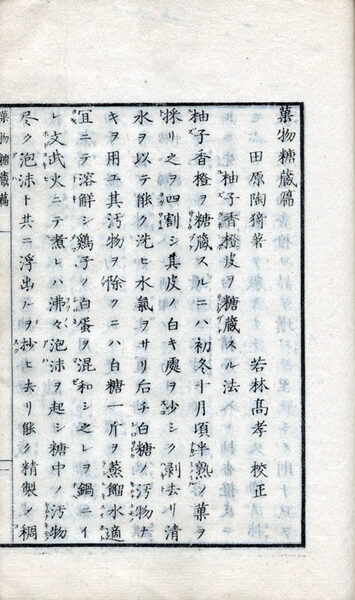 菓物糖蔵篇
田原陶猗著　若林髙孝　校正
柚子香橙皮ヲ糖蔵スル法
柚子香橙ヲ糖蔵スルニハ初冬十月頃半熟ノ菓ヲ
採リ之ヲ四割シ其皮ノ白キ處ヲ少シク剥去リ清
水ヲ以テ能ク洗ヒ水氣ヲサリ后チ白糖ノ汚物ナ
キヲ用ユ其汚物ヲ除クニハ白糖一斤ヲ蒸餾水適
宜ニテ溶解シ鷄子ノ白蛋ヲ混和シ之レヲ鍋ニイ
レ文武火ニテ煮レハ沸々泡沫ヲ起シ糖中ノ汚物
尽ク泡沫ト共ニ浮出ルヲ抄ヒ去リ能ク精製シ稠
菓物糖蔵篇　一